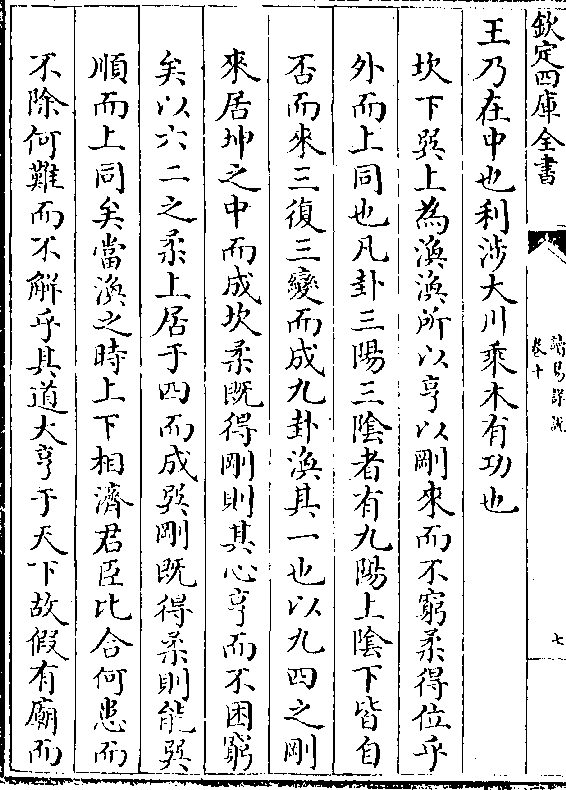 欽定四庫全書
讀易詳說
卷十
七
王乃在中也利渉大川乘木有功也
坎下巽上為渙渙所以亨以剛來而不窮柔得位乎
外而上同也凡卦三陽三陰者有九陽上陰下皆自
否而來三復三變而成九卦渙其一也以九四之剛
來居坤之中而成坎柔既得剛則其心亨而不困窮
矣以六二之柔上居于四而成巽剛既得柔則能巽
順而上同矣當渙之時上下相濟君臣比合何患而
不除何難而不解乎其道大亨于天下故假有廟而